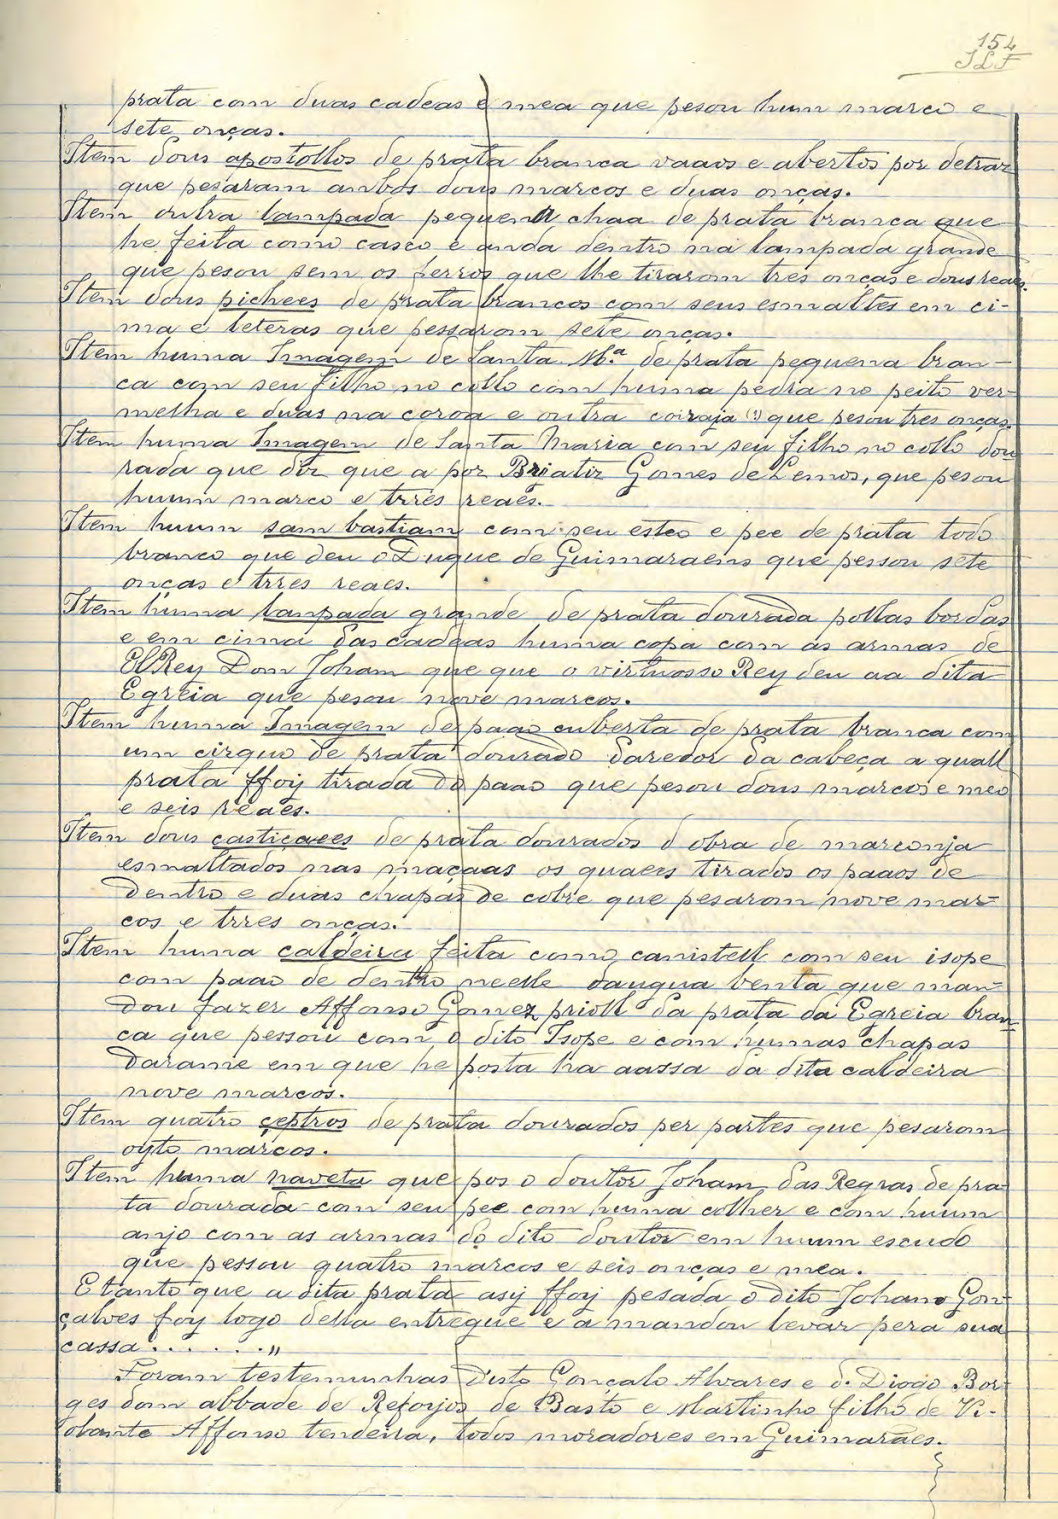 154
prata com duas cadeas e mea que pesou hum marco e
sete onças.
Item dous apostollos de prata branca vaaos e abertos por detraz
que pesaram ambos dous marcos e duas onças.
Item outra lampada pequena chaa de prata branca que
he feita como casco e anda dentro na lampada grande
que pesou sem os ferros que lhe tiraram tres onças e dous reaes.
Item dous pichees de prata brancos com seus esmaltes em ci-
ma e leteras que pessaram sete onças.
Item huma Imagem de Santa M.ª de prata pequena bran-
ca com seu filho no collo com huma pedra no peito ver-
melha e duas na coroa e outra coiraja (?) que pesou tres onças.
Item huma Imagem de Santa Maria com seu filho no collo dou
rada que diz que a poz Briatiz Gomes de Lemos, que pesou
huum marco e trres reaes.
Item huum sam bastiam com seu esteo e pee de prata todo
branco que deu o Duque de Guimaraens que pessou sete
onças e trres reaes.
Item huma lampada grande de prata dourada pollas bordas
e em cima das cadeas huma copa com as armas de
ElRey Dom Joham que que o virtuosso Rey deu aa dita
Egreia que pesou nove marcos.
Item huma Imagem de paao cuberta de prata branca com
um cirquo de prata dourado daredor da cabeça a quall
prata ffoy tirada do paao que pesou dous marcos e meo
e seis reaes.
Item dous castiçaees de prata dourados d obra de marconja
esmaltados nas maçaas os quaees tirados os paaos de
dentro e duas chapas de cobre que pesarom nove mar-
cos e trres onças.
Item huma caldeira feita como canistell com seu isope
com paao de dentro neelle daugua benta que man-
dou fazer Affonso Gomez prioll da prata da Egreia bran-
ca que pessou com o dito Isope e com humas chapas
darame em que he posta ha aassa da dita caldeira
nove marcos.
Item quatro çeptros de prata dourados per partes que pesarom
oyto marcos.
Item huma naveta que pos o doutor Joham das Regras de pra
ta dourada com seu pee com huma colher e com huum
anjo com as armas do dito doutor em huum escudo
que pessou quatro marcos e seis onças e mea.
E tanto que a dita prata asy ffoy pesada o dito Johano Gon
çalves foy logo della entregue e a mandou levar pera sua
cassa . . . . . . „
Foram testemunhas disto Gonçalo Alvares e d. Diogo Bor-
ges dom abbade de Reforjos de Basto e Martinho filho de Vi-
olante Affonso tendeira, todos moradores em Guimarães.